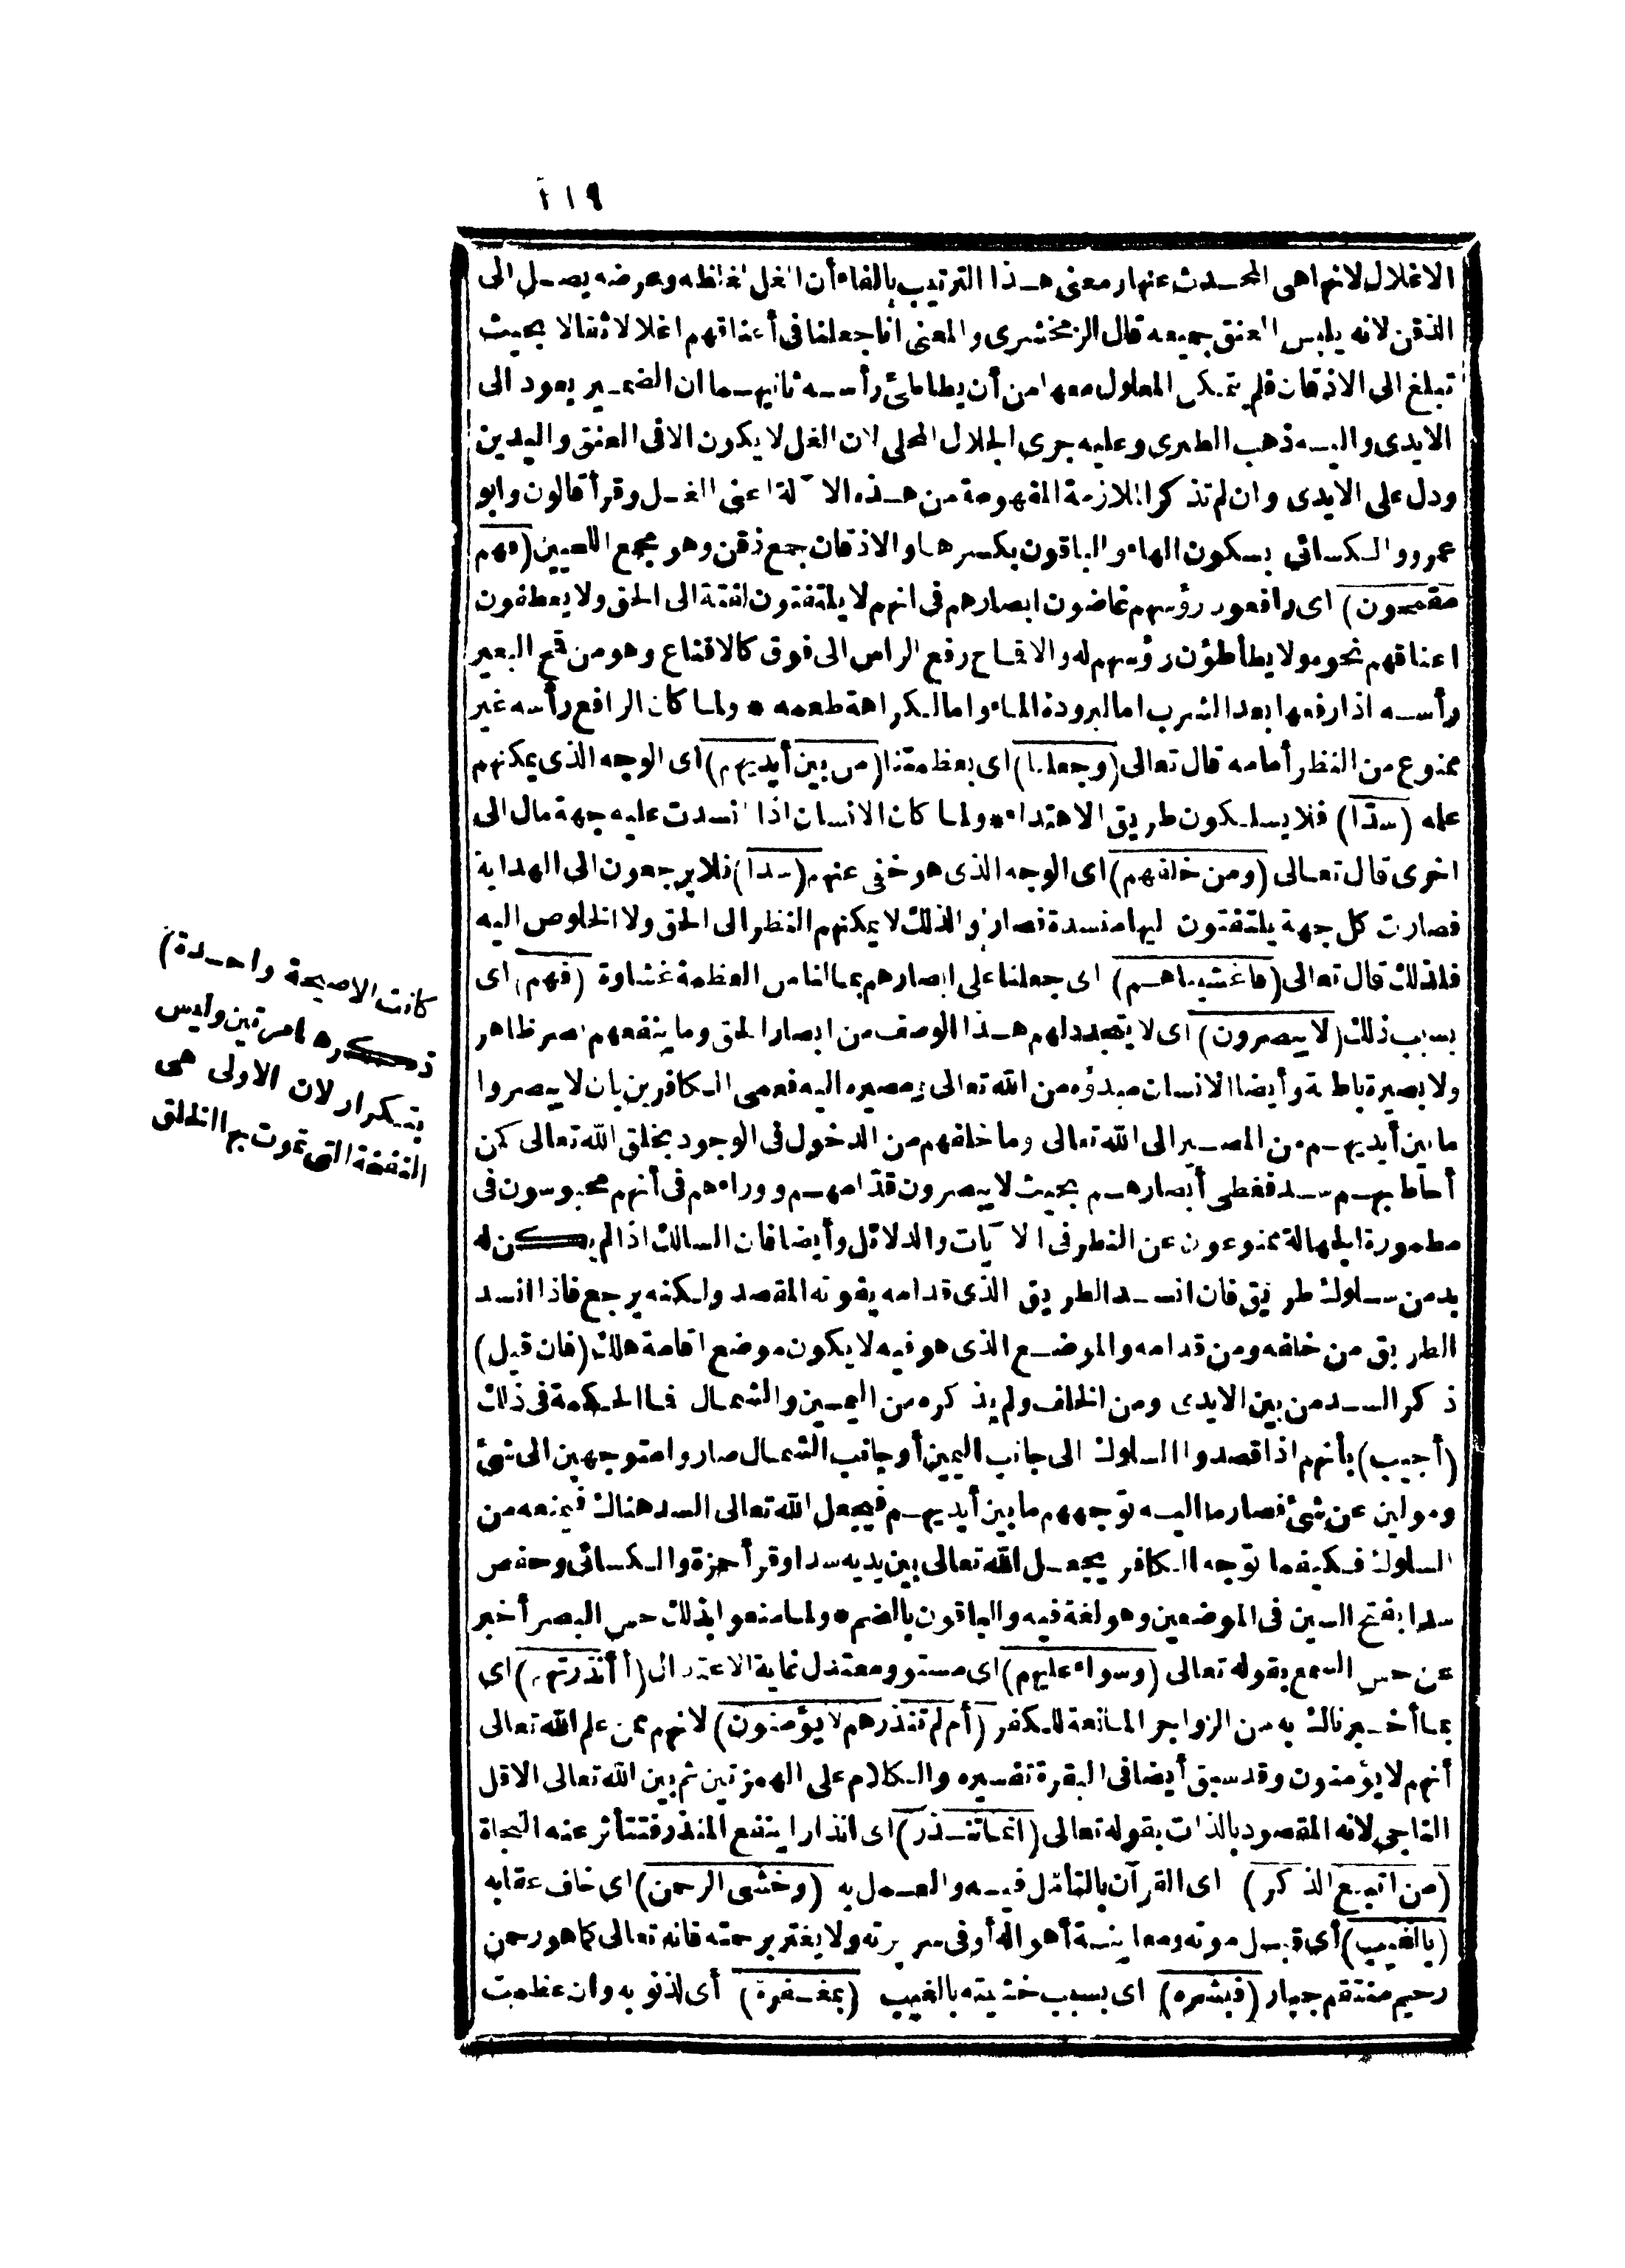 ٣١٩
الاغلال لانها هى المحدث عنها ومعنى هذا الترتيب بالفاء أن الغل لغلظه وعرضه يصل الى
الذقن لانه يلبس العنق جميعه قال الزمخشرى والمعنى انا جعلنا فى أعناقهم اغلالا ثقالا بحيث
تبلغ الى الاذقان فلم يتمكن المغلول معها من أن يطأطئ رأسه ثانيهما ان الضمير يعود الى
الايدى واليه ذهب الطبرى وعليه جرى الجلال المحلى لان الغل لا يكون الا فى العنق واليدين
ودل على الايدى وان لم تذكر الملازمة المفهومة من هذه الآلة اعنى الغل وقرأ قالون وابو
عمرو والكسائى بسكون الهاء والباقون بكسرها والاذقان جمع ذقن وهو مجمع اللحيين (فهم
مقمحون) اى رافعون رؤسهم غاضون ابصارهم فى انهم لا يلتفتون لفتة الى الحق ولا يعطفون
اعناقهم نحوه ولا يطأطؤن رؤسهم له والاقماح رفع الراس الى فوق كالاقناع وهو من قمح البعير
رأسه اذا رفعها بعد الشرب اما لبرودة الماء واما لكراهة طعمه * ولما كان الرافع رأسه غير
ممنوع من النظر أمامه قال تعالى (وجعلنا) اى بعظمتنا (من بين أيديهم) اى الوجه الذى يمكنهم
علمه (سدّا) فلا يسلكون طريق الاهتداء * ولما كان الانسان اذا انسدت عليه جهة مال الى
اخرى قال تعالى (ومن خلفهم) اى الوجه الذى هو خفى عنهم (سدا) فلا يرجعون الى الهداية
فصارت كل جهة يلتفتون اليها منسدة فصاروا لذلك لا يمكنهم النظر الى الحق ولا الخلوص اليه
فلذلك قال تعالى (فاغشيناهم) اى جعلنا على ابصارهم بما لنا من العظمة غشاوة (فهم) اى
بسبب ذلك (لا يبصرون) اى لا يتجدد لهم هذا الوصف من ابصار الحق وما ينفعهم بصر ظاهر
ولا بصيرة باطنة وأيضا الانسان مبدؤه من الله تعالى ومصيره اليه فعمى الكافرين بان لا يبصروا
ما بين أيديهم من المصير الى الله تعالى وما خلفهم من الدخول فى الوجود بخلق الله تعالى كمن
أحاط بهم سد فغطى أبصارهم بحيث لا يبصرون قدّامهم ووراءهم فى أنهم محبوسون فى
مطمورة الجهالة ممنوعون عن النظر فى الآيات والدلائل وأيضا فان السالك اذا لم يكن له
بد من سلوك طريق فان انسد الطريق الذى قدامه يفوته المقصد ولكنه يرجع فاذا انسد
الطريق من خلفه ومن قدامه والموضع الذى هو فيه لا يكون موضع اقامة هلك (فان قيل)
ذكر السد من بين الايدى ومن الخلف ولم يذكره من اليمين والشمال فما الحكمة فى ذلك
(أجيب) بأنهم اذا قصدوا السلوك الى جانب اليمين أو جانب الشمال صاروا متوجهين الى شئ
ومولين عن شئ فصار ما اليه توجههم ما بين أيديهم فيجعل الله تعالى السد هناك فيمنعه من
السلوك فكيفما توجه الكافر يجعل الله تعالى بين يديه سدا وقرأ حمزة والكسائى وحفص
سدا بفتح السين فى الموضعين وهو لغة فيه والباقون بالضم * ولما منعوا بذلك حس البصر أخبر
عن حس السمع بقوله تعالى (وسواء عليهم) اى مستو ومعتدل غاية الاعتدال (أأنذرتهم) اى
بما أخبرناك به من الزواجر المانعة للكفر (أم لم تنذرهم لا يؤمنون) لانهم ممن علم الله تعالى
أنهم لا يؤمنون وقد سبق أيضا فى البقرة تفسيره والكلام على الهمزتين ثم بين الله تعالى الاقل
الناجى لانه المقصود بالذات بقوله تعالى (انما تنذر) اى انذارا ينتفع المنذر فتتأثر عنه النجاة
(من اتبع الذكر) اى القرآن بالتأمّل فيه والعمل به (وخشى الرحمن) اى خاف عقابه
(بالغيب) أى قبل موته ومعاينة أهواله أو فى سريرته ولا يغتر برحمته فانه تعالى كما هو رحمن
رحيم منتقم جبار (فبشره) اى بسبب خشيته بالغيب (بمغفرة) أى لذنوبه وان عظمت
كانت الا صيحة واحدة)
ذكره هنا مرتين وليس
بتكرار لان الاولى هى
النفخة التى تموت بها الخلق